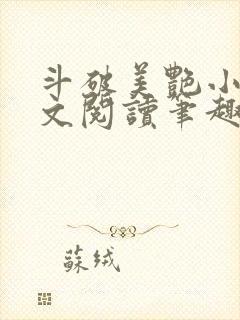 斗破美艷小
文閱讀筆趣
蘇绒